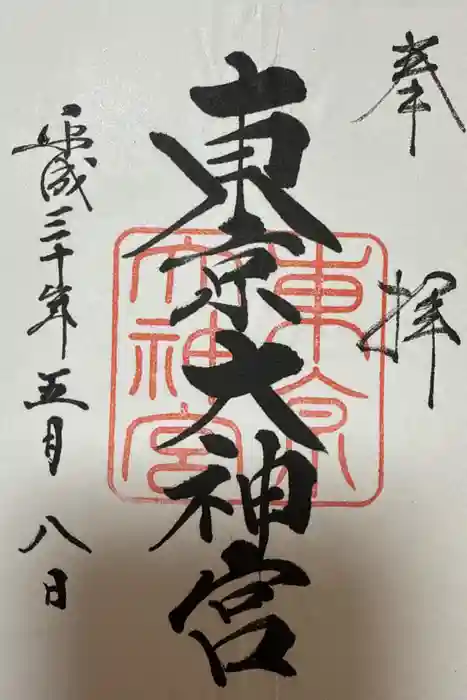 奉拝
東京大神宮
東京
大神宮
平成三十年五月八日